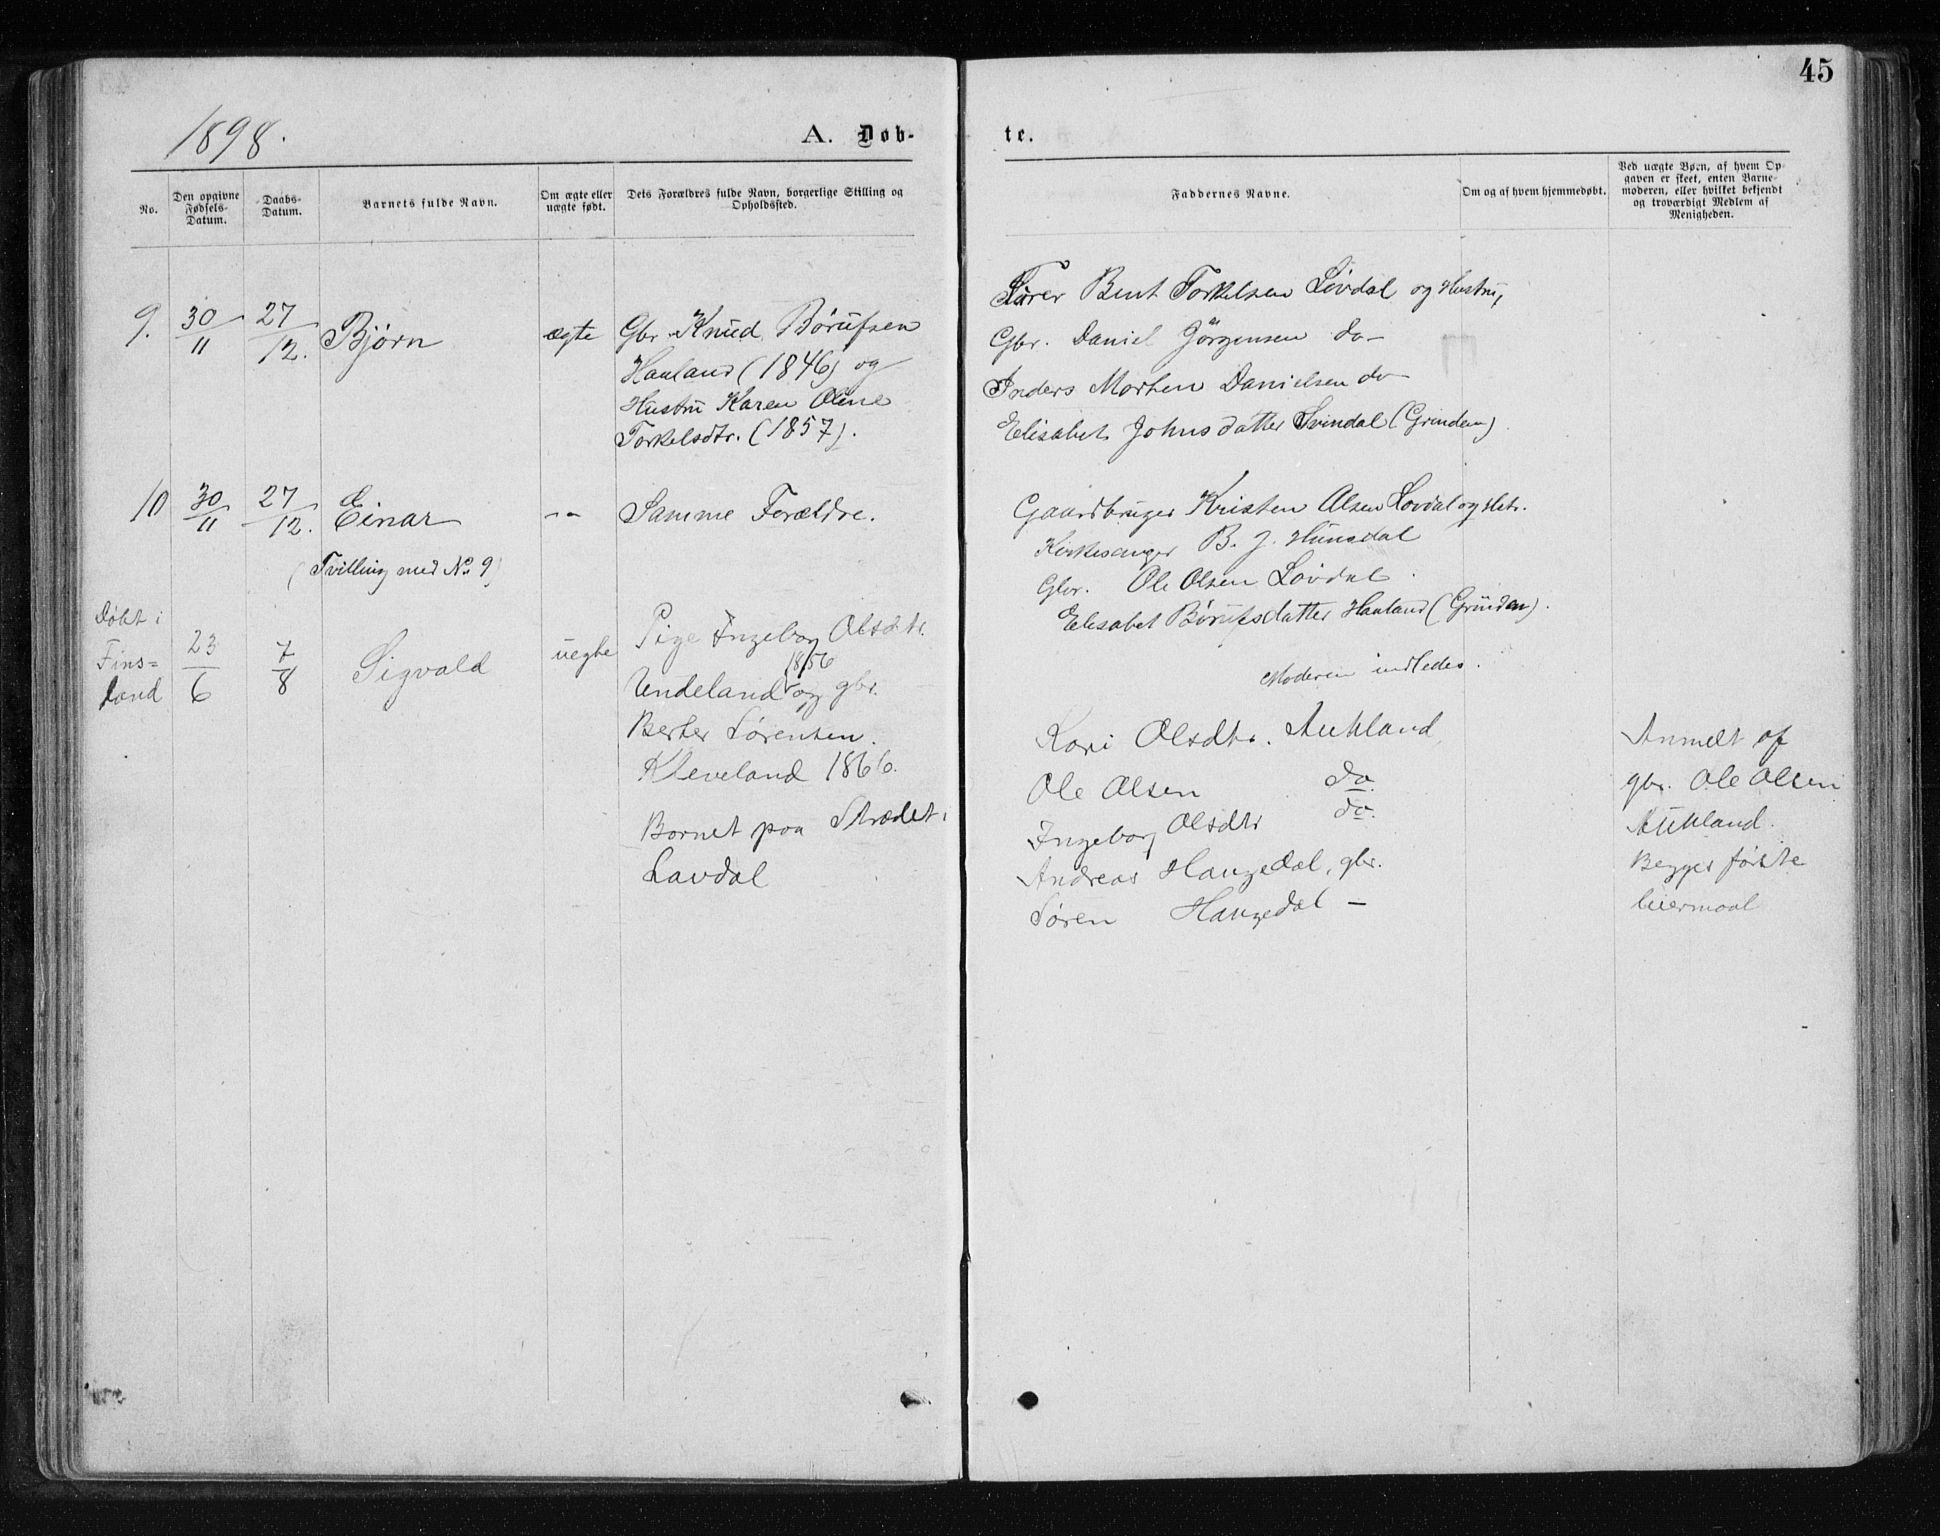 45
1898.
A. Døb-
te.
No.
Den opgivne Fødsels-Datum.
Daabs-Datum.
Barnets fulde Navn.
Om ægte eller uægte født.
Dets Forældres fulde Navn, borgerlige Stilling og Opholdssted.
Faddernes Navne.
Om og af hvem hjemmedøbt.
Ved uægte Børn, af hvem Op-
gaven er skeet, enten Barne-
moderen, eller hvilket bekjendt
og troværdigt Medlem af
Menigheden.
9. 30/11 27/12. Bjørn ægte Gbr. Knud Børufsen
Hauland (1846) og
Hustru Karen Oline
Torkelsdtr. (1857).
Bent Torkelsen Løvdal og Hustru,
Gbr. Daniel Jörgensen do
Anders Morten Danielsen do
Elisabet Johnsdatter Svindal (Grinden)
10 30/11 27/12. Einar -- Samme Forældre.
(Tvilling med No 9)
Gaardbruger Kristen Olsen Lovdal og Hstr.
Kirkesanger B. J. Hunsdal
Gbr. Ole Olsen Lovdal.
Elisabet Børufsdatter Hauland (Grinden).
Moderen indledes.
Døbt i
Fins=
land
23/6 7/8 Sigvald uegte Pige Ingeborg Olsdtr.
1856
Undeland og gbr.
Berter Sørensen
Kleveland 1866.
Barnet paa Strædet i
Lavdal
Kari Olsdtr. Aukland,
Ole Olsen do.
Ingeborg Olsdtr do.
Andreas Haugedal, gbr.
Søren Haugedal -
Anmeldt af
gbr. Ole Olsen
Aukland.
Begges første
leiermaal